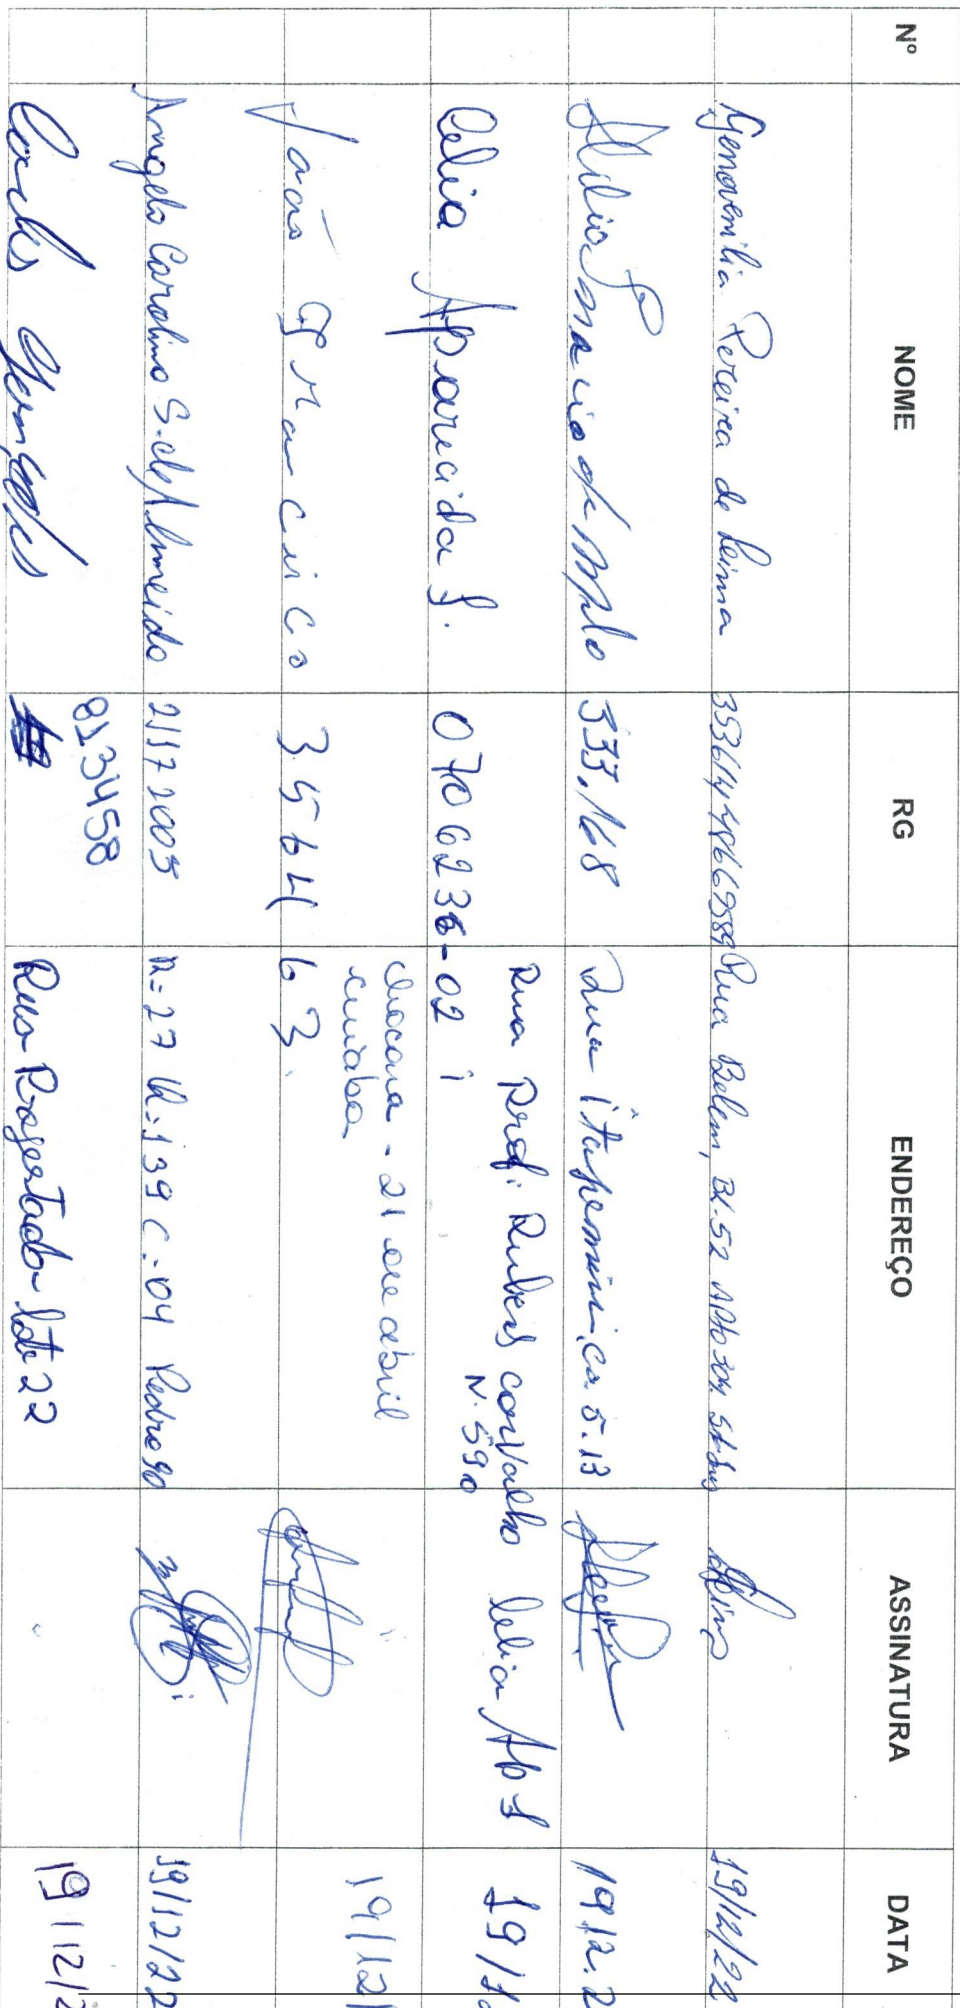 Nº NOME RG ENDEREÇO ASSINATURA DATA
Genovenilia Pereira de Leima Rua Belem, Bl. 52 Apto 304 19/12/22
de Mplo 333.168 Rua Itapemirim, ca. 5.13 1912.2
Celia Aparecida S. 0706236-02 Rua Prof. Rubens carvalho N. 590 Celia Ap S 19/1
João Francisco 3564463 chacara - 21 de abril cuiaba 19/12/
Angela Carolina S. de Almeida 21172005 R=27 Q=139 C-04 Pedra 90 19/12/22
Carlos 8134458 Rua Progetado lote 22 19/12/2